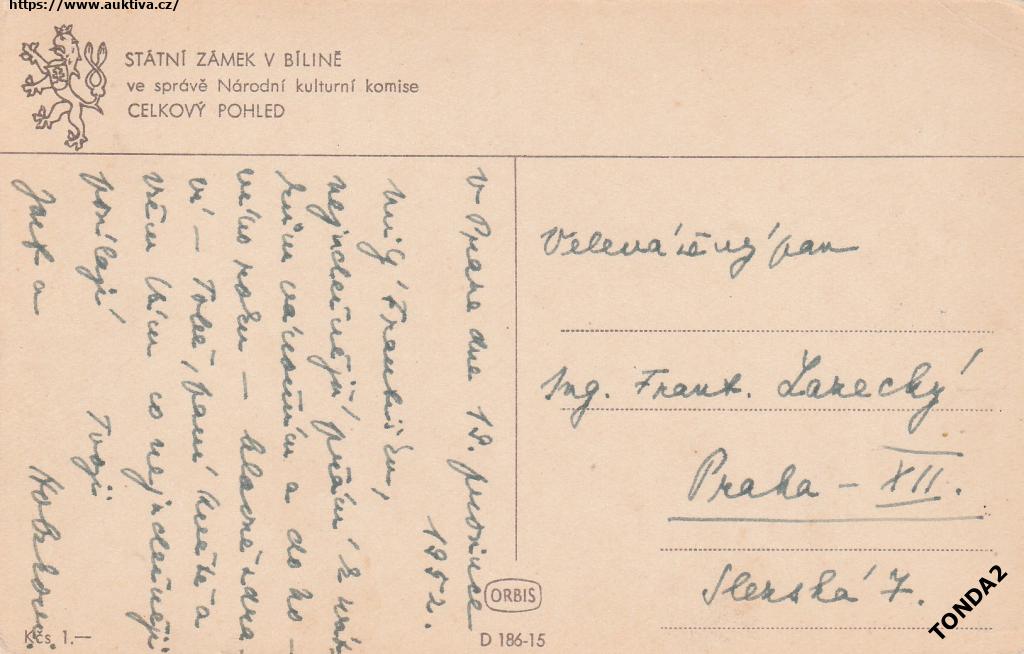 https://www.auktiva.cz/
STÁTNÍ ZÁMEK V BÍLINĚ
ve správě Národní kulturní komise
CELKOVÝ POHLED
V Praze dne 19. prosince
1952.
Milý Františku,
nejsrdečnější přání k
a do no-
vého roku – hlavně zdra-
ví – Tobě, paní Květě a
všem Vám co nejsrdečněji
posílají
Tvoji
a
Velevážený pan
Ing. Frant. Žarecký
Praha – XII.
Slezská 7.
Kčs 1.—
ORBIS
D 186-15
TONDA2